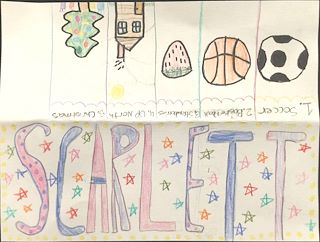 1. Soccer
2. Basketball
3. Strawberries
4. Up North
5. Christmas
SCARLETT